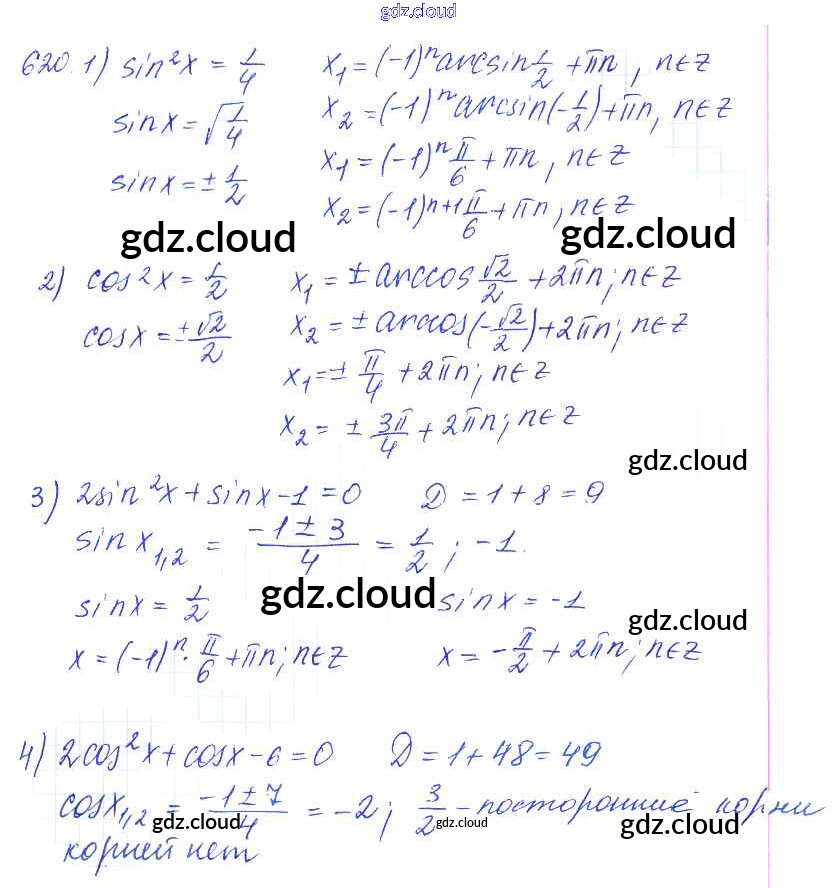 gdz.cloud
620. 1) sin²x = 1/4 x₁ = (-1)ⁿ arcsin 1/2 + πn, n∈Z
sinx = √(1/4) x₂ = (-1)ⁿ arcsin(-1/2) + πn, n∈Z
sinx = ± 1/2 x₁ = (-1)ⁿ π/6 + πn, n∈Z
x₂ = (-1)ⁿ⁺¹ π/6 + πn, n∈Z
gdz.cloud gdz.cloud
2) cos²x = 1/2 x₁ = ± arccos √2/2 + 2πn; n∈Z
cosx = ±√2/2 x₂ = ± arccos(-√2/2) + 2πn; n∈Z
x₁ = ± π/4 + 2πn; n∈Z
x₂ = ± 3π/4 + 2πn; n∈Z
gdz.cloud
3) 2sin²x + sinx - 1 = 0 D = 1 + 8 = 9
sinx₁,₂ = (-1 ± 3)/4 = 1/2; -1.
sinx = 1/2 gdz.cloud sinx = -1
gdz.cloud
x = (-1)ⁿ · π/6 + πn; n∈Z x = - π/2 + 2πn; n∈Z
4) 2cos²x + cosx - 6 = 0 D = 1 + 48 = 49
cosx₁,₂ = (-1 ± 7)/4 = -2; 3/2 - посторонние корни
gdz.cloud gdz.cloud gdz.cloud
корней нет